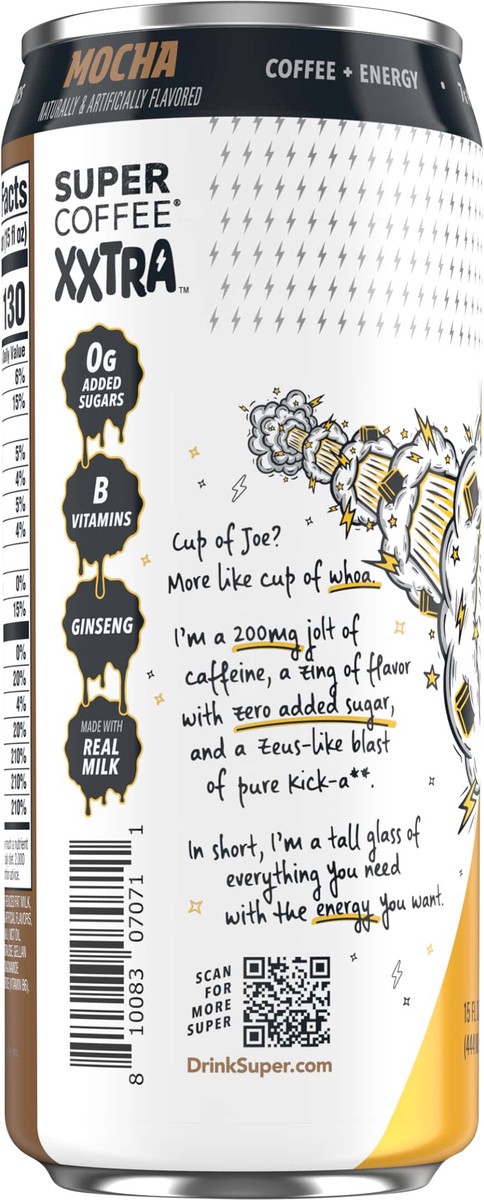 MOCHA
NATURALLY & ARTIFICIALLY FLAVORED
COFFEE + ENERGY •
SUPER
COFFEE®
XXTRA™
Facts
(15 fl oz)
130
Daily Value
6%
15%
5%
4%
5%
4%
0%
15%
0%
20%
4%
20%
210%
210%
210%
0G
ADDED
SUGARS
B
VITAMINS
GINSENG
MADE WITH
REAL
MILK
Cup of Joe?
More like cup of whoa.
I'm a 200mg jolt of
caffeine, a zing of flavor
with zero added sugar,
and a Zeus-like blast
of pure kick-a**.
In short, I'm a tall glass of
everything you need
with the energy you want.
8 10083 07071 1
SCAN
FOR
MORE
SUPER
DrinkSuper.com
15 FL